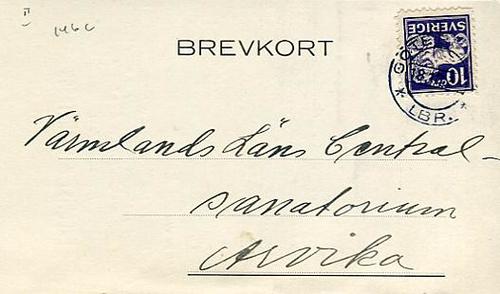 II
146c
BREVKORT
SVERIGE
10
GÖTE
LBR.
Värmlands Läns Central-
sanatorium
Arvika